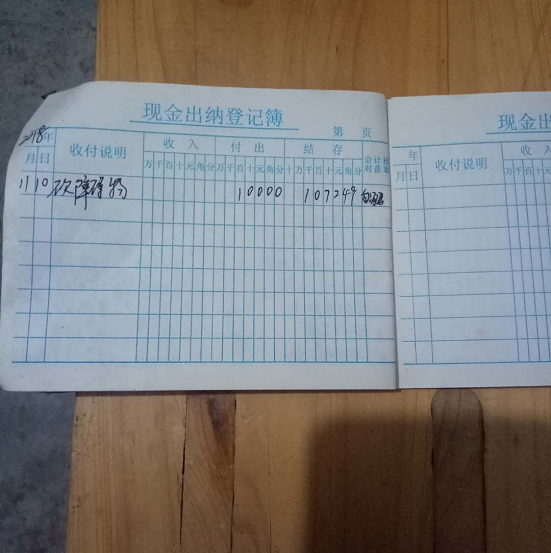 现金出纳登记簿
第 页
2018年 收付说明 收入 付出 结存
月 日 万千百十元角分 万千百十元角分 十万千百十元角分
11 10 砍障碍物 10000 107249
现金出
年 收付说明 收
月 日 万千百